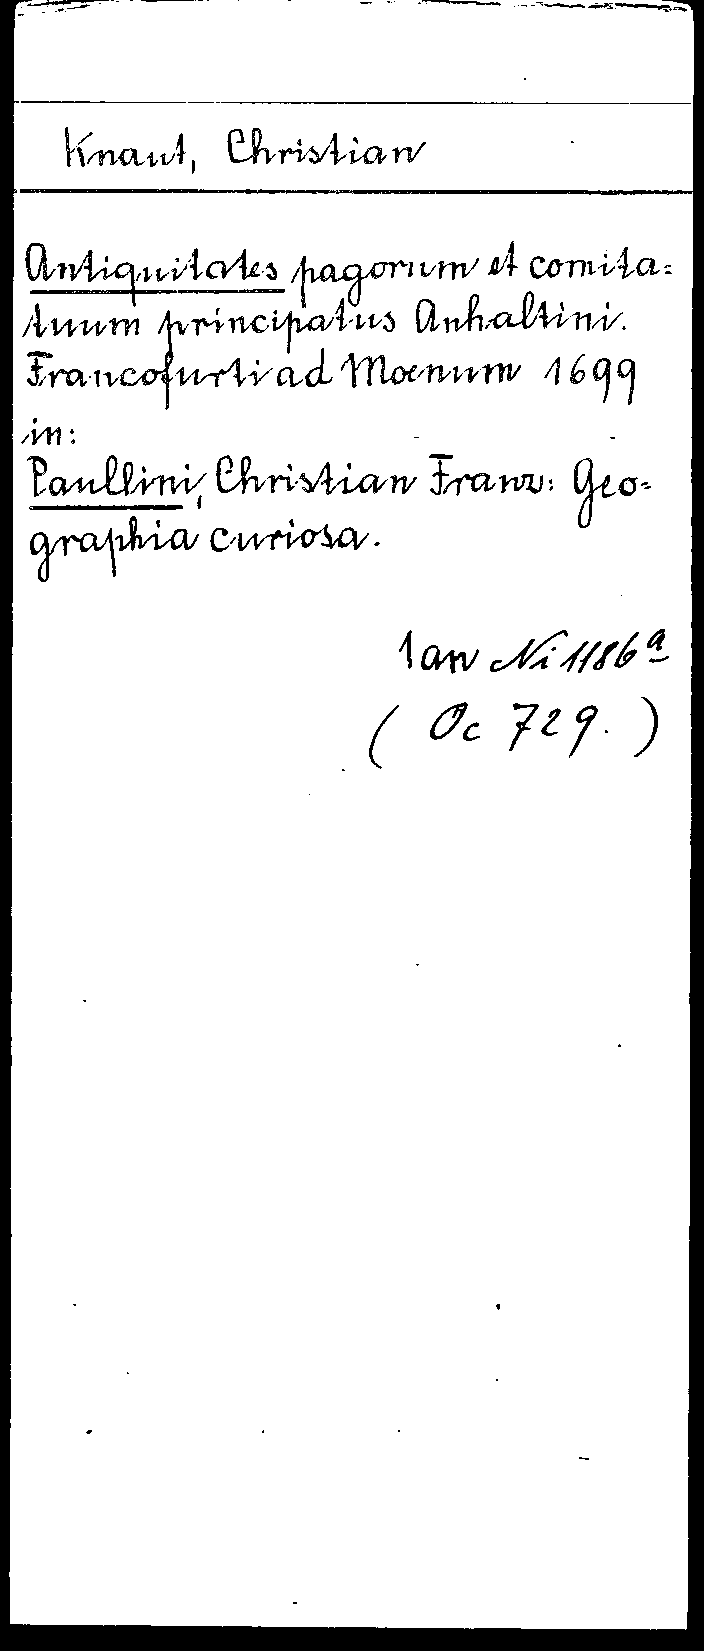 Knaut, Christian
Antiquitates pagorum et comita=
tuum principatus Anhaltini.
Francofurti ad Moenum 1699
in:
Paullini, Christian Franz: Geo-
graphia curiosa.
1 an Ni 1186 a
( Oc 729. )